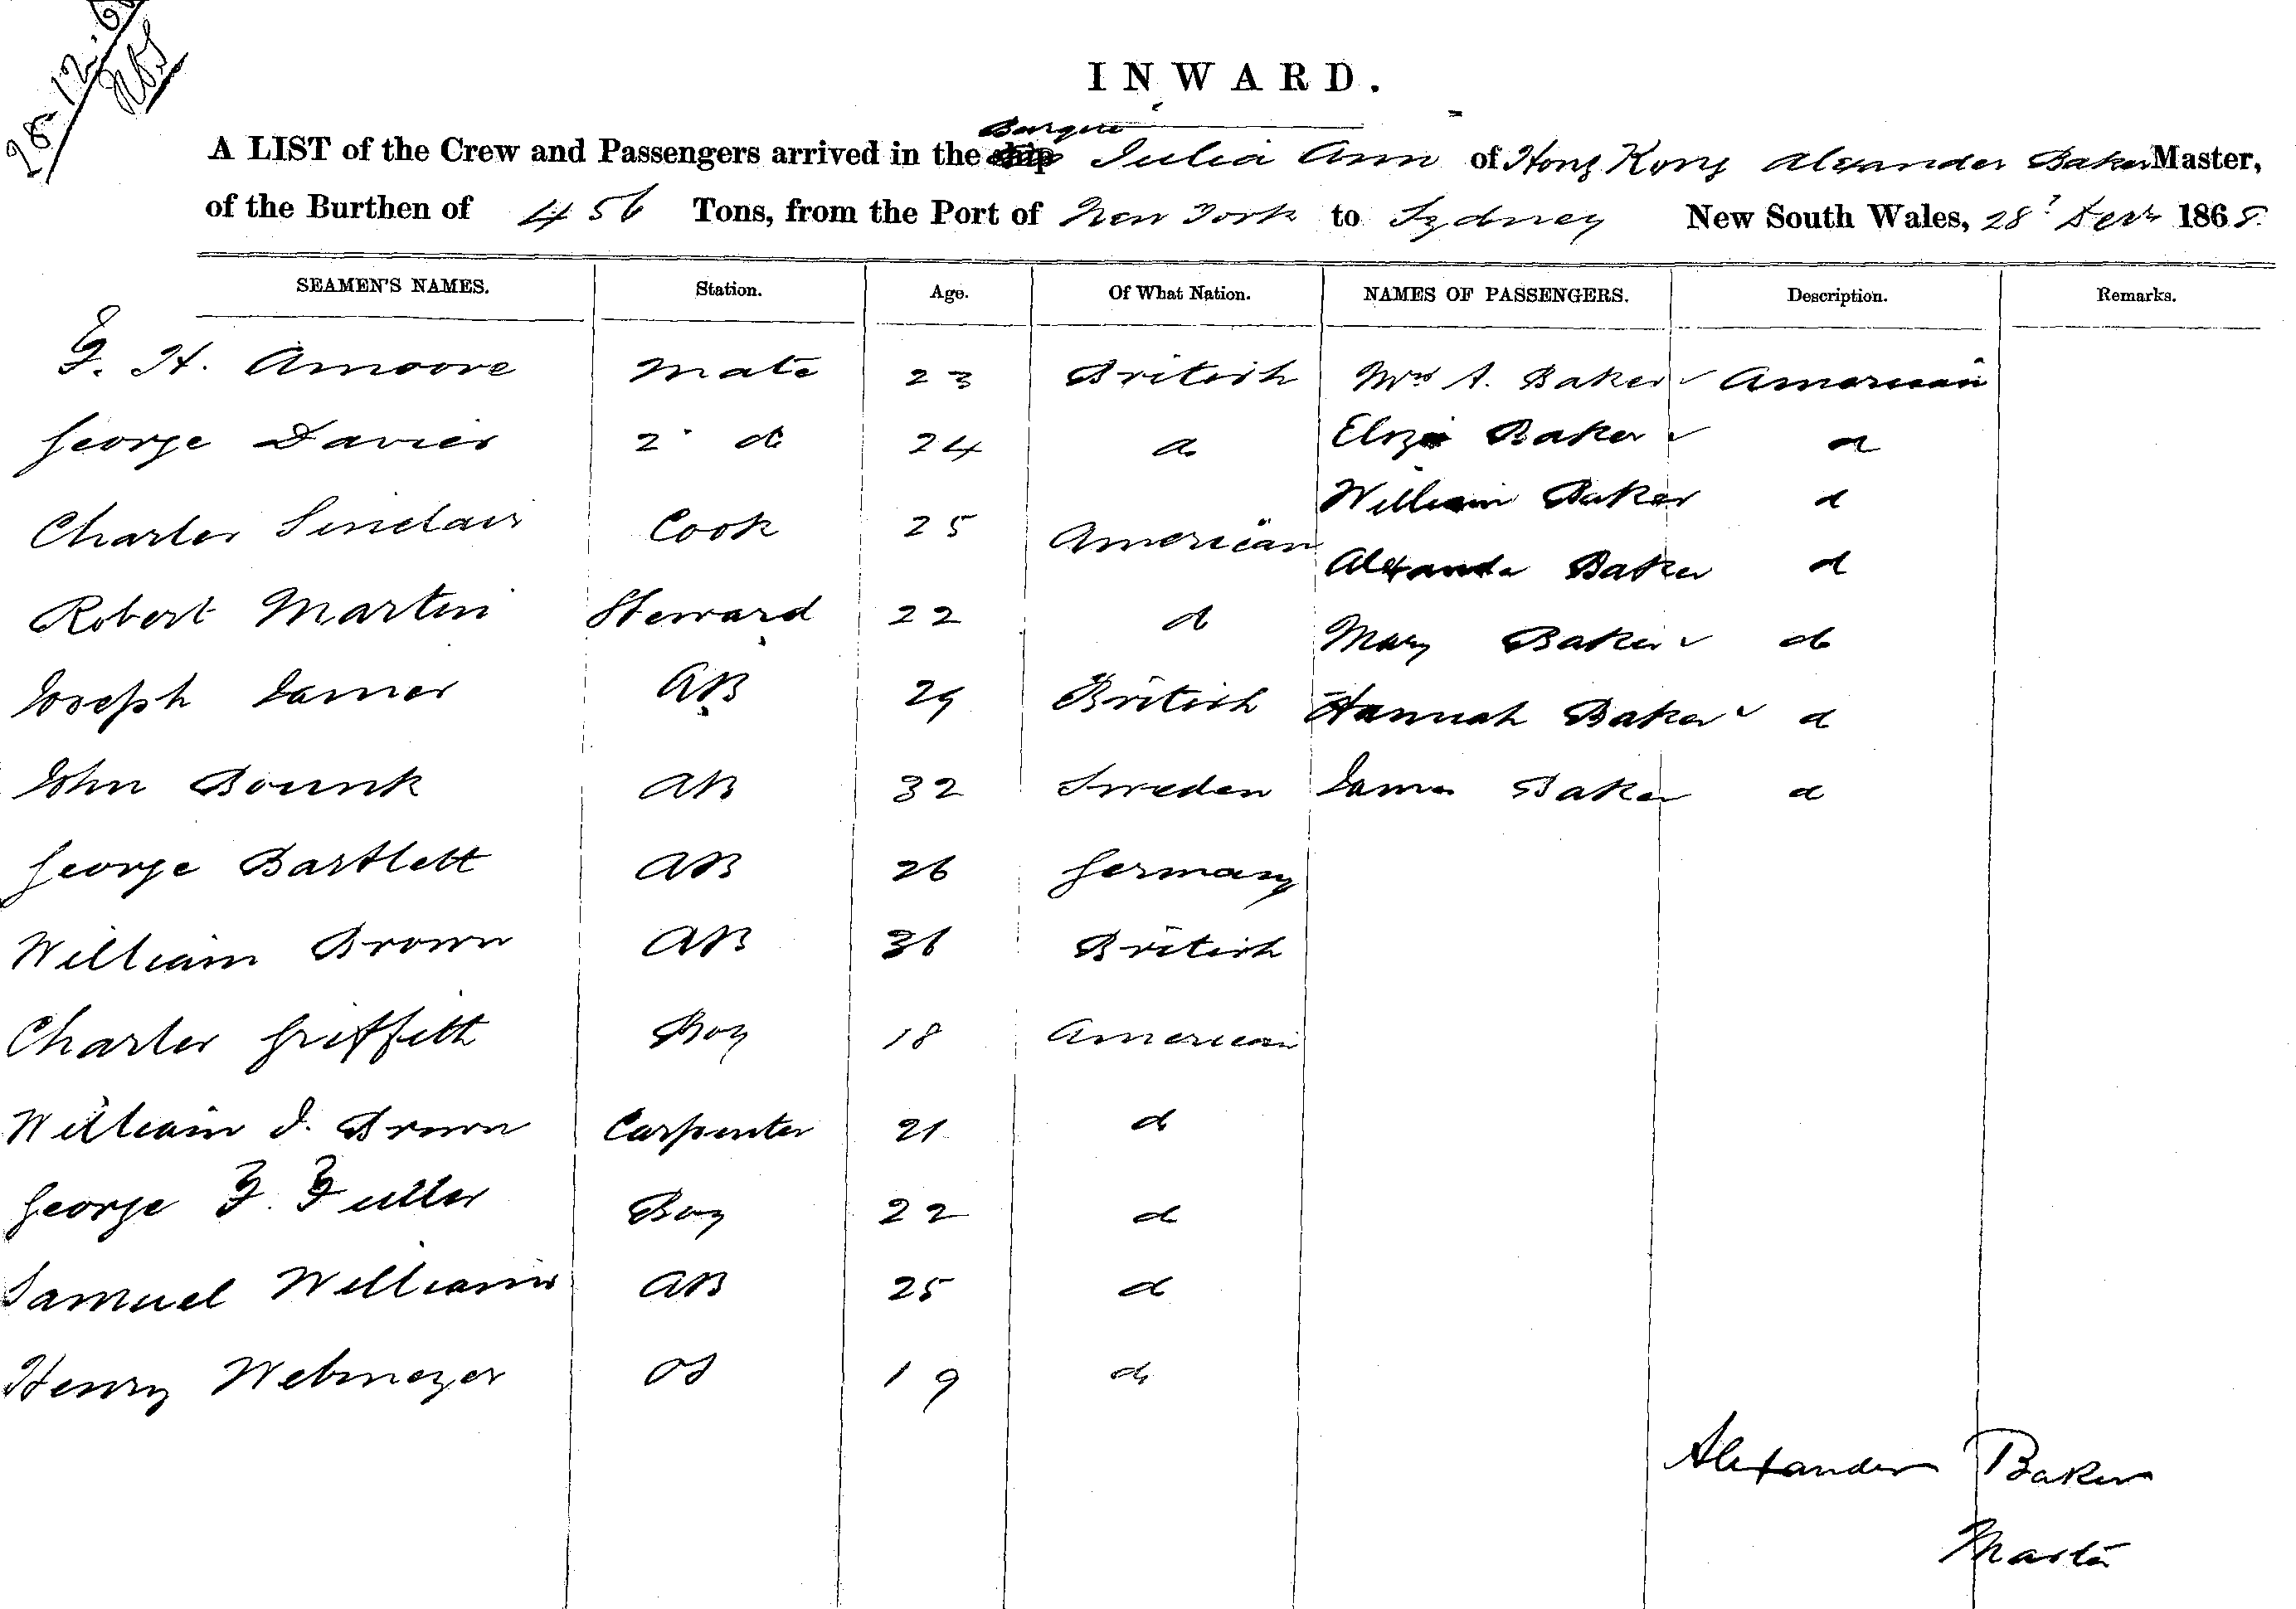 28-12-6
INWARD.
Barque
A LIST of the Crew and Passengers arrived in the ship Julia Ann of Hong Kong Alexander Baker Master,
of the Burthen of 456 Tons, from the Port of New York to Sydney New South Wales, 28 Decr 1868.
SEAMEN'S NAMES. Station. Age. Of What Nation. NAMES OF PASSENGERS. Description. Remarks.
F. H. Amoore Mate 23 British Mrs A. Baker American
George Davies 2 d 24 d Eliza Baker d
Charles Sinclair Cook 25 American William Baker d
Alexander Baker d
Robert Martin Steward 22 d Mary Baker do
Joseph James AB 29 British Hannah Baker d
John Bounk AB 32 Sweden James Baker d
George Bartlett AB 26 Germany
William Brown AB 36 British
Charles Griffith Boy 18 American
William J. Brown Carpenter 21 d
George F. Fuller Boy 22 d
Samuel Williams AB 25 d
Henry Webmeyer OS 19 d
Alexander Baker
Master